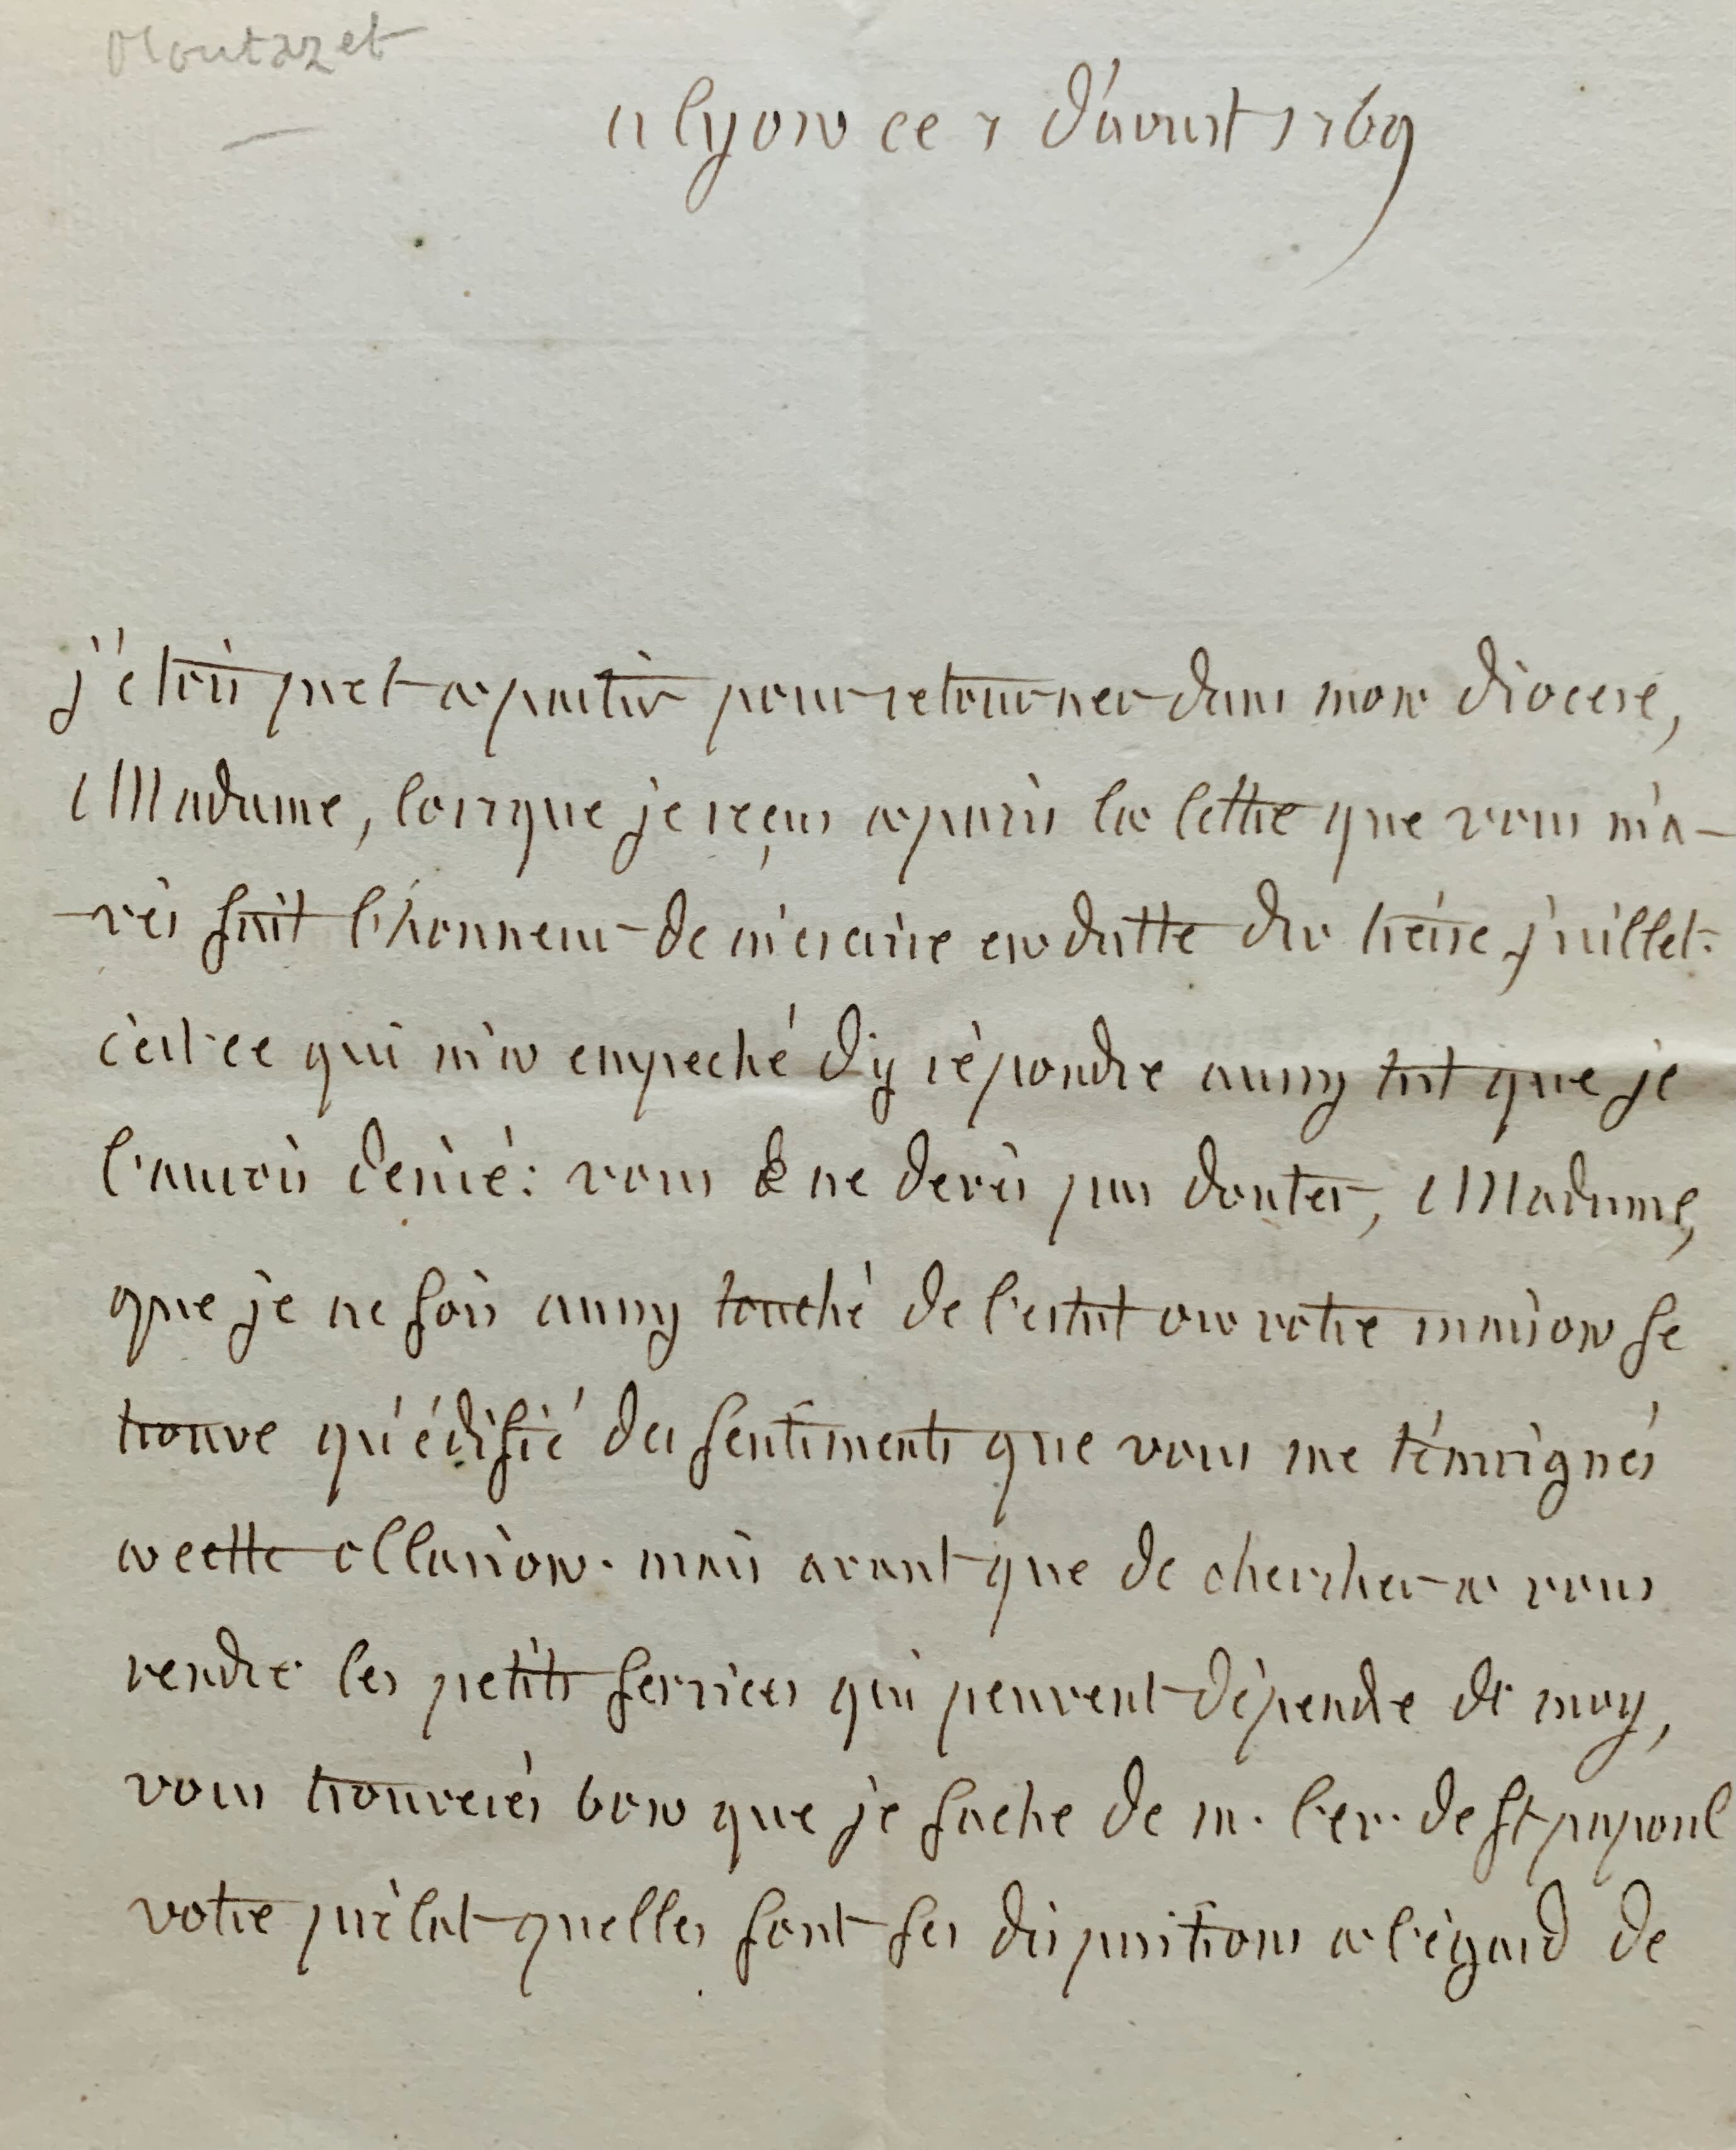 Montazet
a lyon ce 7 d'aoust 1769
j'étois pret a partir pour retourner dans mon diocese,
Madame, lorsque je reçus a paris la lettre que vous m'a-
-vés fait l'honneur de m'escrire en datte du treise juillet.
c'est ce qui m'a empeché d'y répondre aussy tost que je
l'aurois desiré: vous ne devés pas douter, Madame,
que je ne sois aussy touché de l'estat ou votre maison se
trouve qu'édifié des sentiments que vous me témoignés
a cette occasion. mais avant que de chercher a vous
rendre les petits services qui peuvent dépendre de moy,
vous trouverés bon que je sache de m. l'ev. de St papoul
votre prélat quelles sont ses dispositions a l'égard de